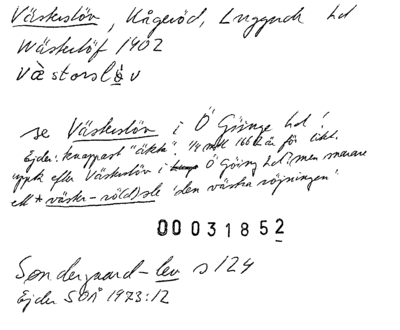 Västerslöv, Kågeröd, Luggude hd
Westerlöf 1902
västorslöv
se Västerslöv i Ö Göinge hd!
Ejder: knappast "äkta". 1/4 mtl 1662 är för
uppk efter Västerslöv i Ö Göing hd? men snarare
ett *väster-rö(d)sle 'den västra röjningen'
00031852
Søndergaard-lev s 124
Ejder SOÅ 1973:12